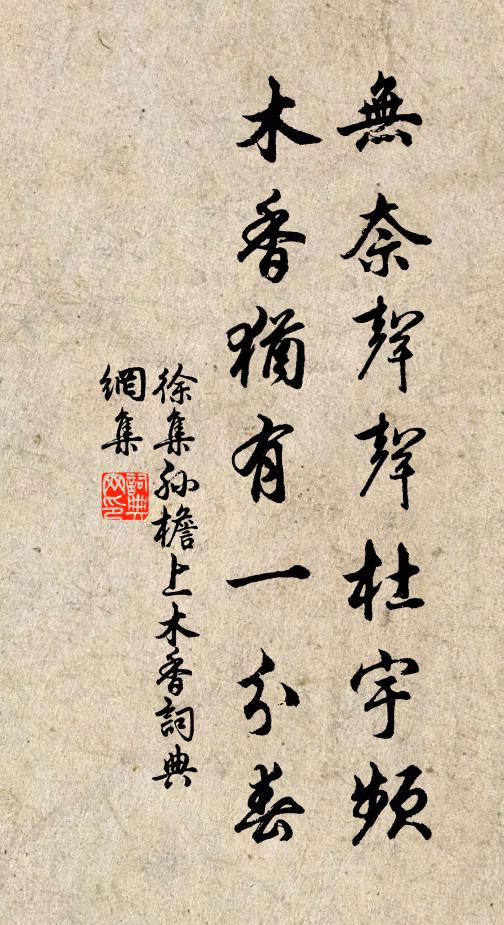 無奈聲聲杜宇頻
木香猶有一分春
徐集孙檐上木香詞典
網集
詞典